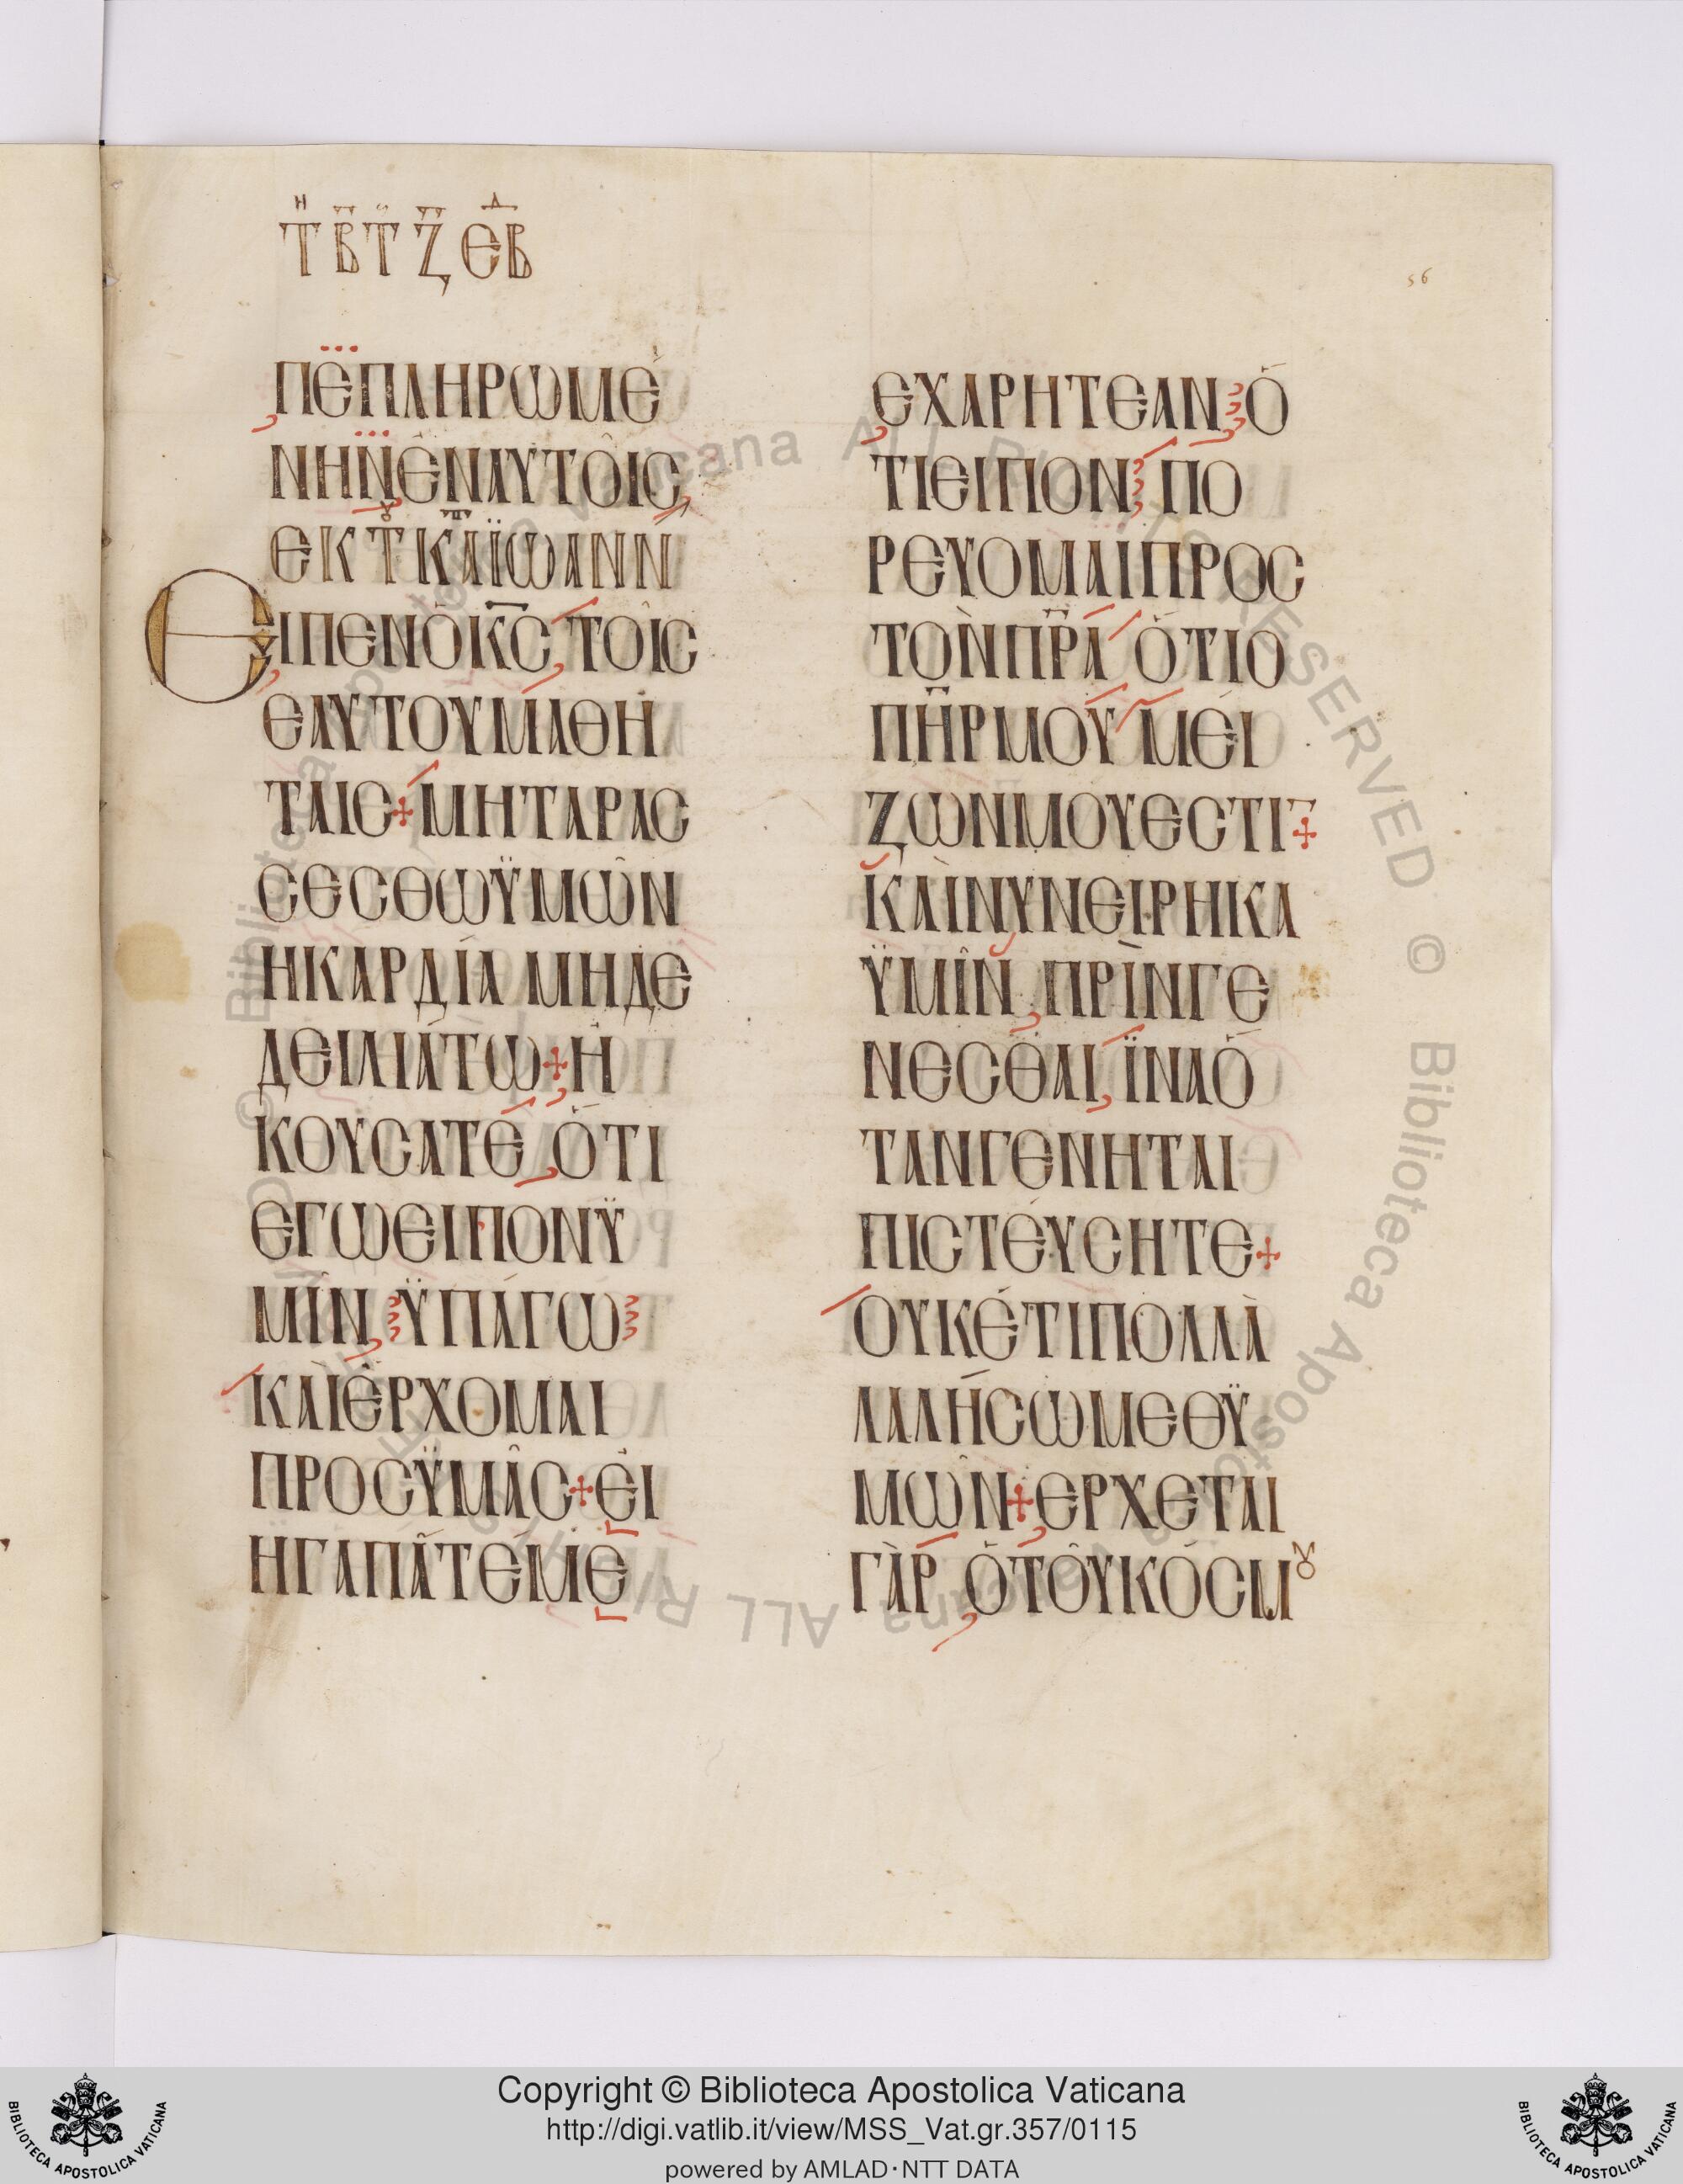 Τῆ Β̄ Τ̄ Ζ̄ ΕΒΔ
56
ΠΕΠΛΗΡΩΜΈ
ΝΗΝΕΝΑΥΤΟΙ͂Ϲ
ΕΚ Τ ΚΑΪΩΑΝΝ
ΕΙΠΕΝΟΚ̅Ϲ̅ ΤΟΙ͂Ϲ
ΕΑΥΤΟΥΜΑΘΗ
ΤΑΙϹ+ΜΗΤΑΡΑϹ
ϹΕϹΘΩΫΜΩ͂Ν
ΗΚΑΡΔΊΑΜΗΔΕ
ΔΕΙΛΙΆΤΩ+Η
ΚΟΥϹΑΤΕ ὉΤΙ
ΕΓΩΕΙΠΟΝΫ
ΜΙ͂Ν ΫΠΆΓΩ
ΚΑΙΕΡΧΟΜΑΙ
ΠΡΟϹΫΜΑ͂Ϲ+ΕΙ
ΗΓΑΠΑ͂ΤΕΜΕ
ΕΧΑΡΗΤΕΑΝ Ὁ
ΤΙΕΙΠΟΝ ΠΟ
ΡΕΥΟΜΑΙΠΡΟϹ
ΤῸΝΠ̅Ρ̅Α̅ ὉΤΙΟ
ΠΗΡΜΟΥ ΜΕΙ
ΖΩΝΜΟΥΕϹΤΙ+
ΚΑῚΝΥΝΕΙΡΗΚΑ
ΫΜΙ͂Ν ΠΡῚΝΓΕ
ΝΕϹΘΑΙ ΪΝΑὉ
ΤΑΝΓΕΝΗΤΑΙ
ΠΙϹΤΕΥϹΗΤΕ+
ΟΥΚΈΤΙΠΟΛΛᾺ
ΛΑΛΉϹΩΜΕΘΫ
ΜΩ͂Ν+ΕΡΧΕΤΑΙ
ΓᾺΡ ὉΤΟΥ͂ΚΌϹΜȣ
Copyright © Biblioteca Apostolica Vaticana
http://digi.vatlib.it/view/MSS_Vat.gr.357/0115
powered by AMLAD·NTT DATA
BIBLIOTECA APOSTOLICA VATICANA
BIBLIOTECA APOSTOLICA VATICANA